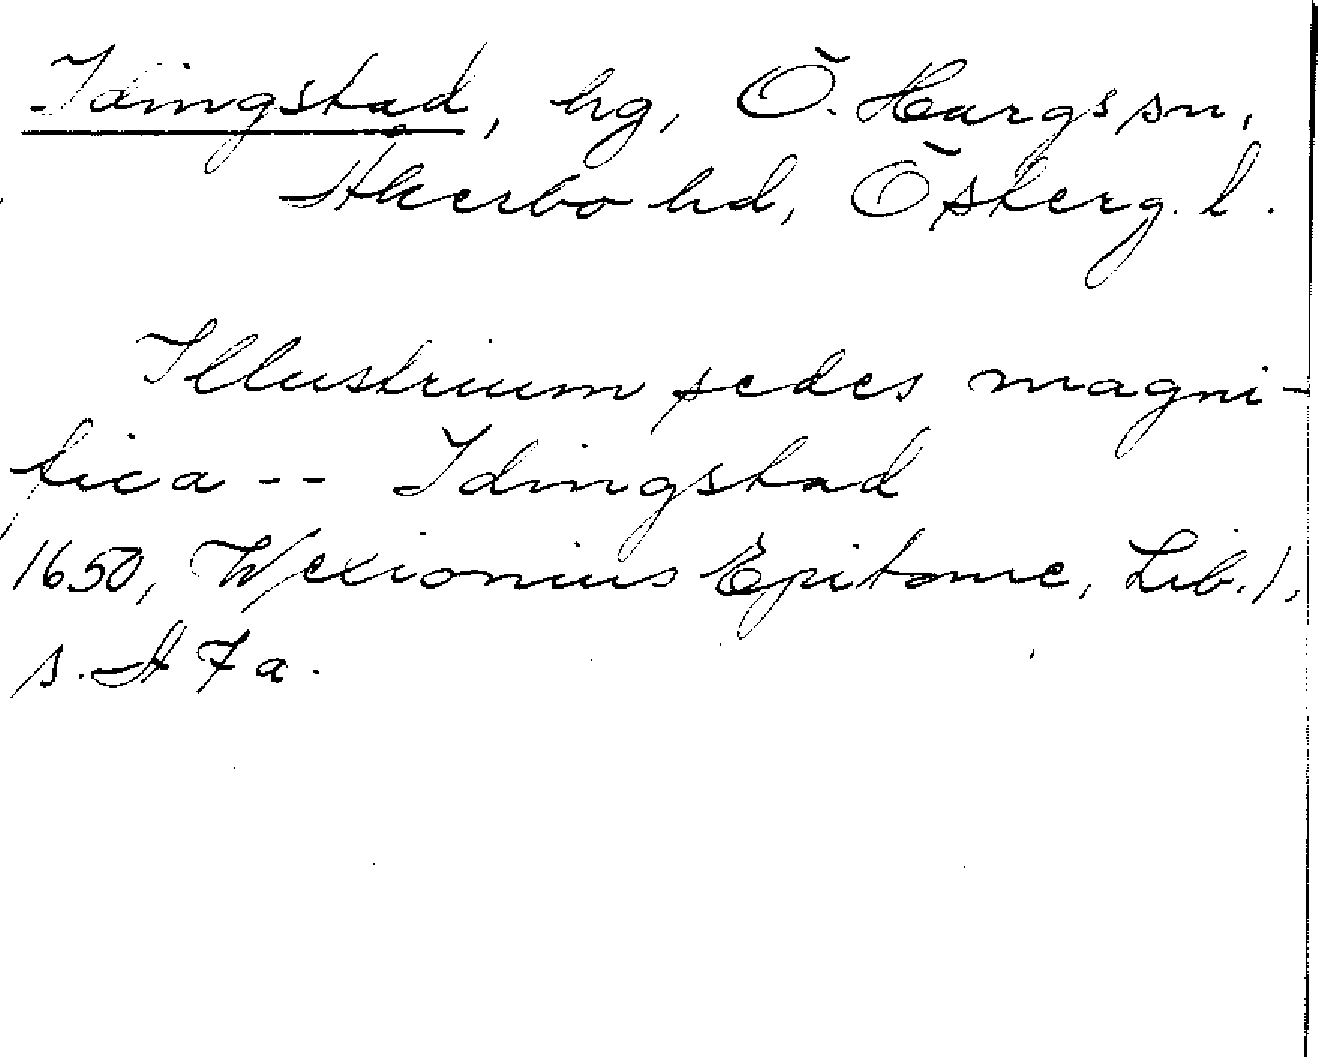 Idingstad, hg, Ö. Hargs sn,
Åkerbo hd, Österg. l.
Illustrium sedes magni-
fica -- Idingstad
1650, Wexionius Epitome, Lib. 1,
s. A 7 a.